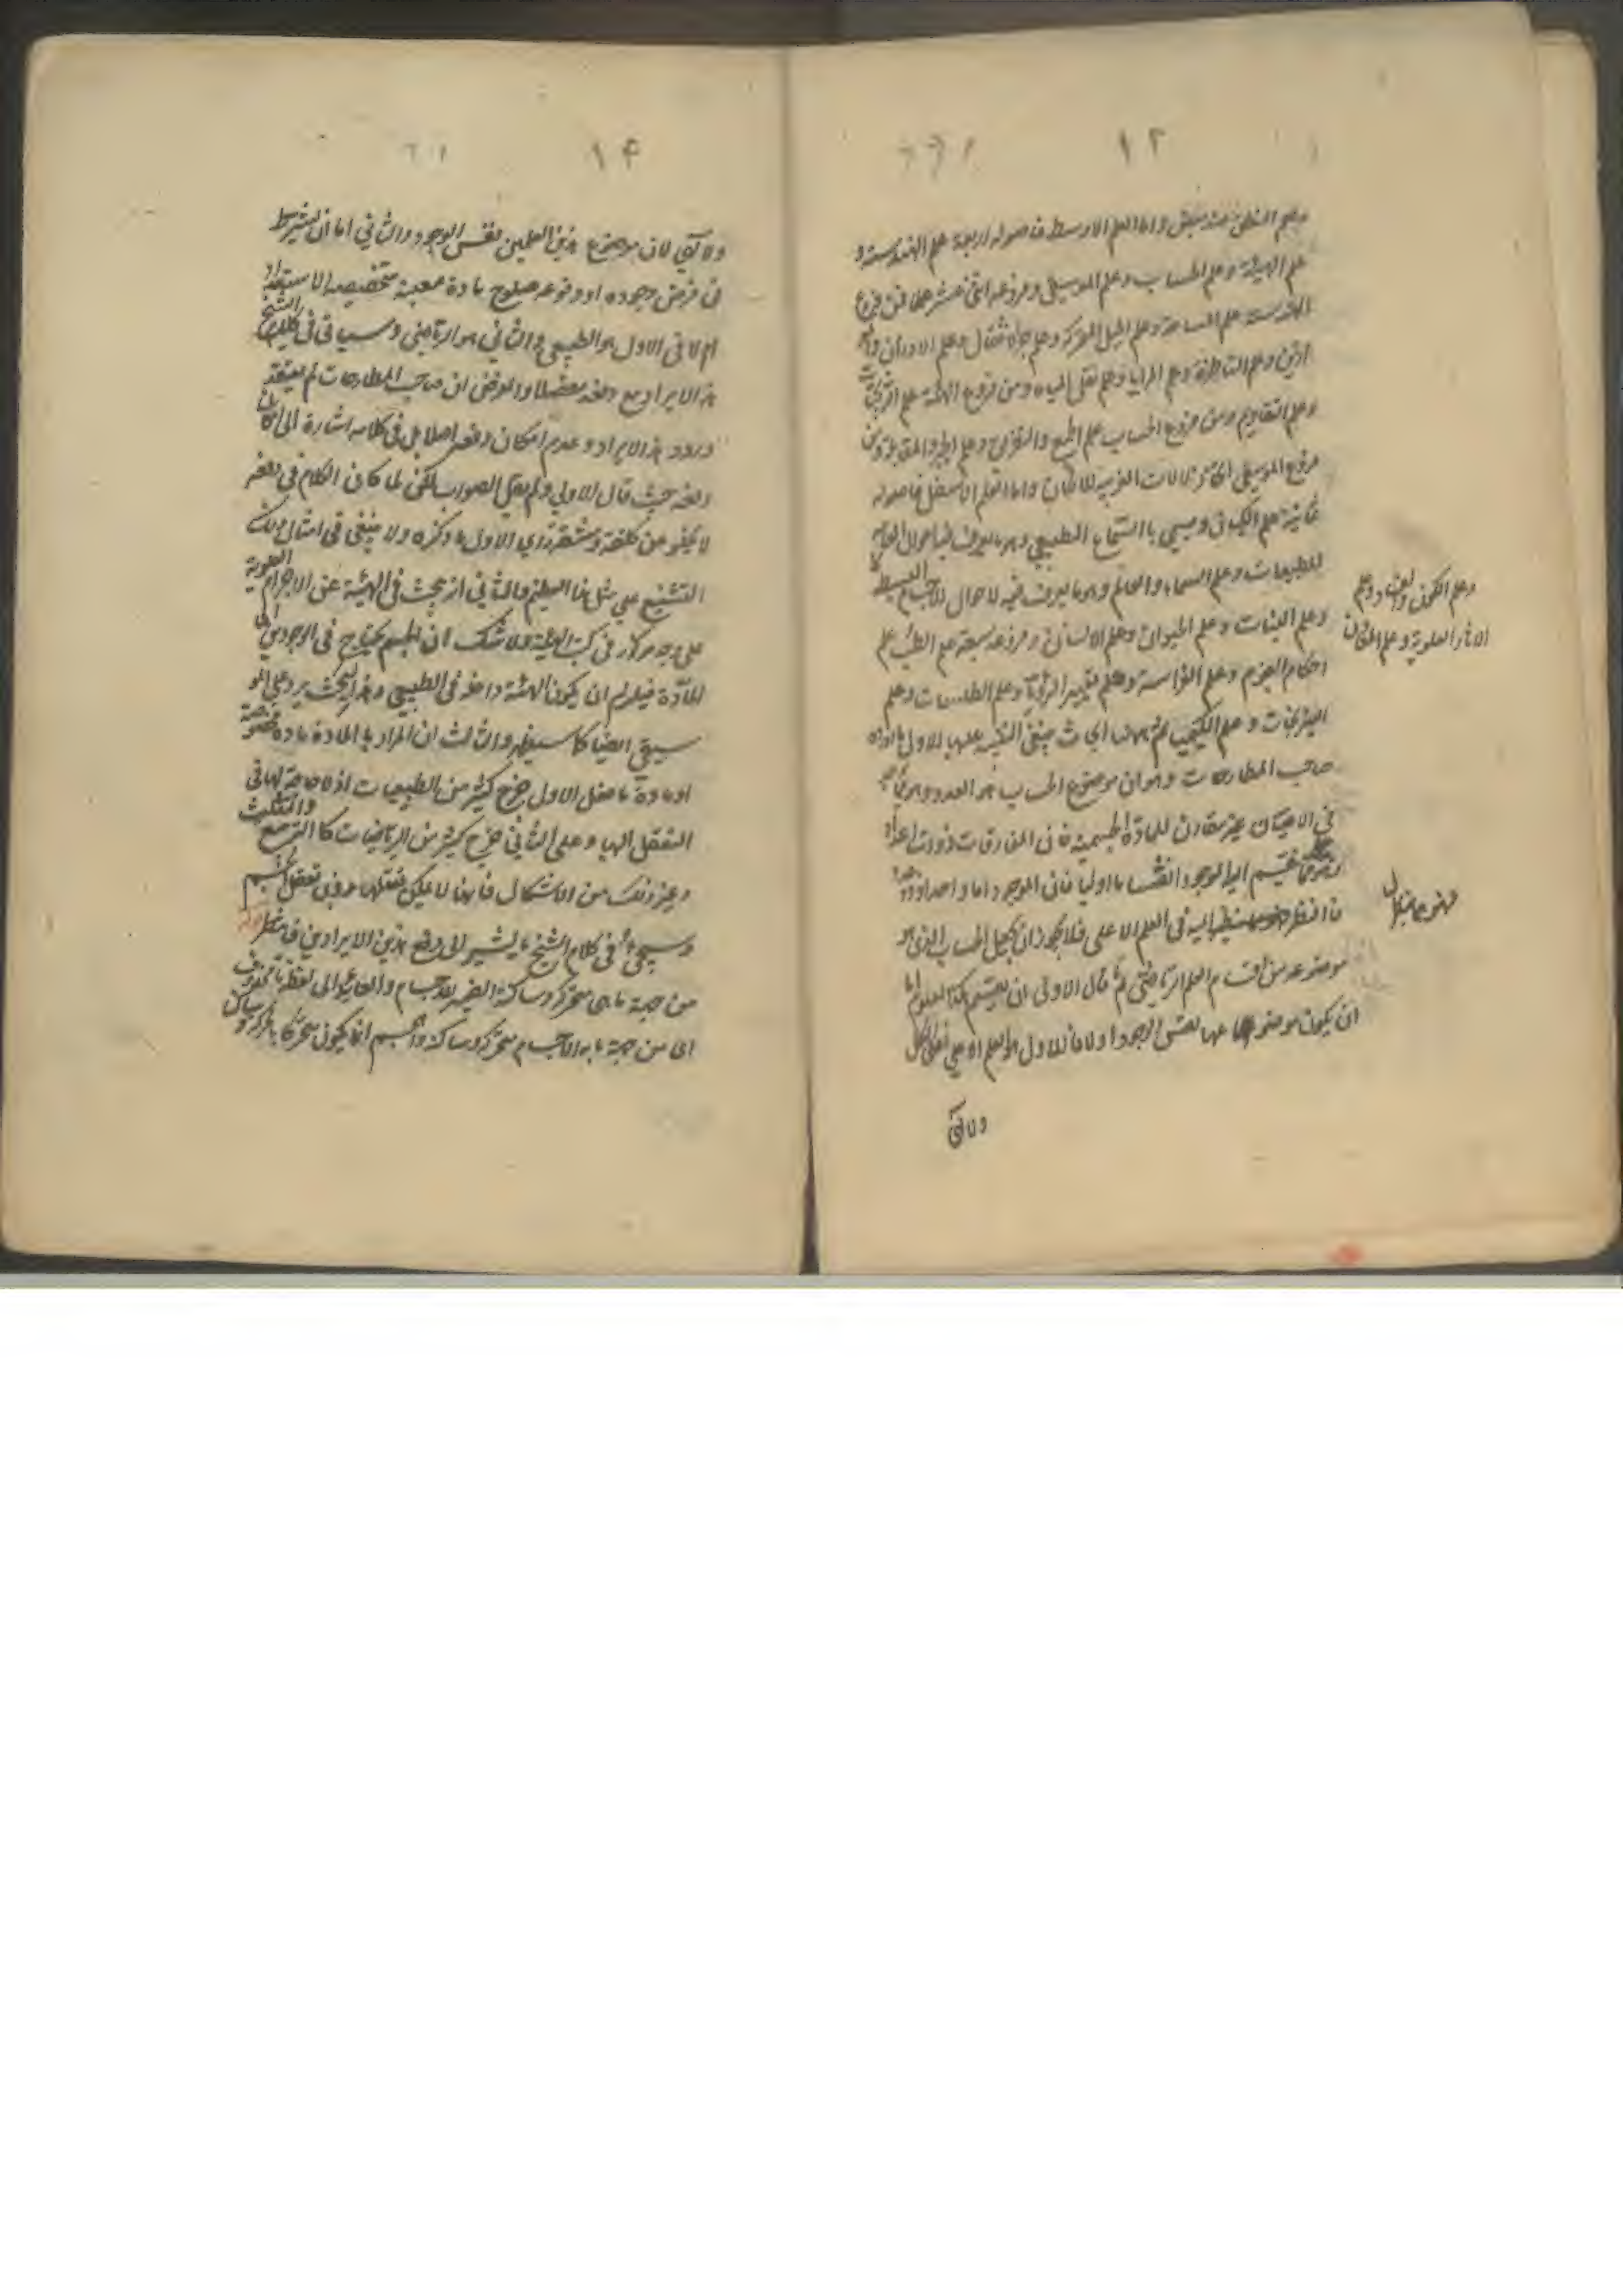 ١٢
وعلم المنطق عند بعض واما العلم الاوسط فاصوله اربعة علم الهندسة و
علم الهيئة وعلم الحساب وعلم الموسيقى وفروعه اثنى عشر علما فمن فروع
الهندسة علم المساحة وعلم الحيل المتحركة وعلم جر الاثقال وعلم الاوزان و
الموازين وعلم المناظرة وعلم المرايا وعلم نقل المياه ومن فروع الهيئة علم الزيجات
وعلم التقاويم ومن فروع الحساب علم الجمع والتفريق وعلم الجبر والمقابلة ومن
فروع الموسيقى اتخاذ الالات الغريبة للالحان واما العلم الاسفل فاصوله
ثمانية علم الكيان ويسمى بالسماع الطبيعي وهو ما يعرف فيه احوال
للطبيعيات وعلم السماء والعالم وهو ما يعرف فيه احوال الاجسام البسيطة
وعلم الكون والفساد وعلم
الاثار العلوية وعلم المعادن
وعلم النبات وعلم الحيوان وعلم الانسان وفروعه سبعة علم الطب علم
احكام النجوم وعلم الفراسة وعلم تعبير الرؤيا وعلم الطلسمات وعلم
النيرنجات وعلم الكيميا ثم ههنا ابحاث ينبغي التنبيه عليها الاول ما اورده
صاحب المطارحات وهو ان موضوع الحساب هو العدد وهو
في الاعيان غير مقارن للمادة الجسمية فان المفارقات ذوات اعداد
ينقسم اليها الموجود انقساما اوليا فان الموجود اما واحد او
فالنظر اليه في العلم الاعلى فلا يجوز ان يجعل الحساب الذي هو
موضوعه من اقسام العلم الرياضي ثم قال الاولى ان يقسم هكذا العلوم اما
ان يكون موضوعها نفس الوجود او لا فالاول هو العلم الاعلى
ولا آلي
١٤
ولا آلي لان موضوع هذين العلمين نفس الوجود والثاني اما ان يشترط
في فرض وجوده او وقوعه صلوح مادة معينة متخصصة الاستعداد
ام لا فالاول هو الطبيعي والثاني هو الرياضي وسياتي في كلام الشيخ
هذا الايراد مع دفعه مفصلا والغرض ان صاحب المطارحات لم يعتقد
ورود هذا الايراد وعدم امكان دفعه اصلا بل في كلامه اشارة الى امكان
دفعه حيث قال الاولى ولم يقل الصواب لكن لما كان الكلام في دفعه
لا يخلو عن كلفة ومشقة راى الاولى ما ذكره ولا ينبغي في امثال ذلك
التشنيع على مثل هذا العظيم والثاني انه يبحث في الهيئة عن الاجرام العلوية
على وجه مركوز في كتب الهيئة ولا شك ان الجسم يحتاج في الوجودين الى
المادة فيلزم ان يكون الهيئة داخلة في الطبيعي وهذا البحث يرد على
سيقي ايضا كما سيظهر والثالث ان المراد بالمادة مادة مخصوصة
او مادة ما فعلى الاول خرج كثير من الطبيعيات اذ لا حاجة لها في
التعقل اليها وعلى الثاني خرج كثير من الرياضيات كالتربيع والتثليث
وغير ذلك من الاشكال فانها لا يمكن تعقلها بدون تعقل الجسم
وسيجيء في كلام الشيخ ما يشير الى دفع هذين الايرادين فانتظر
من جهة ما هي متحركة وساكنة الضمير للاجسام والعائد الى لفظة ما محذوف
اى من جهة ما به الاجسام متحركة وساكنة والجسم انما يكون متحركا